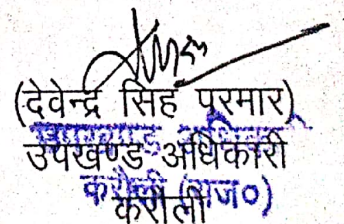 (देवेन्द्र सिंह परमार)
उपखण्ड अधिकारी
उपखण्ड अधिकारी
करौली (राज०)
करौली